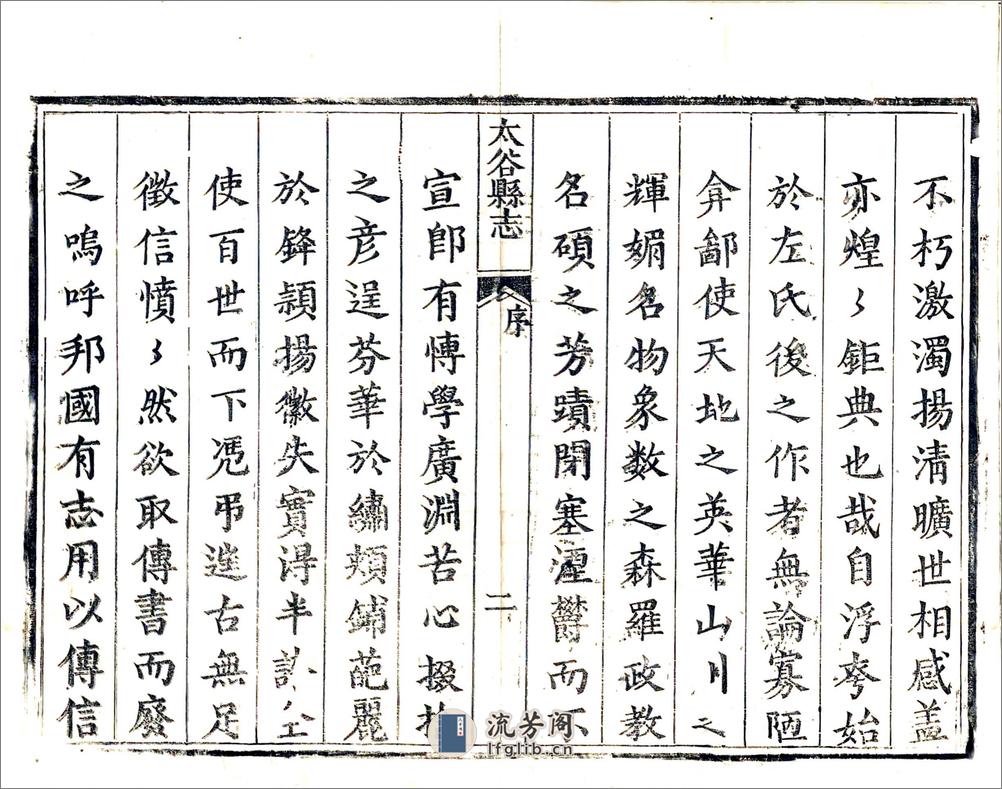 不朽激濁揚淸曠世相感盖
亦煌〻鉅典也哉自浮夸始
於左氏後之作者無論寡陋
弇鄙使天地之英華山川之
輝媚名物象数之森羅政教
名碩之芳蹟閉塞湮欝而不
太谷縣志
序
二
宣卽有愽學廣淵苦心掇
之彦逞芬華於繡頰鋪葩麗
於鋒頴揚徽失實淂半
使百世而下凴弔遳古無足
徵信憤〻然欲取傳書而廢
之嗚呼邦國有志用以傳信
流芳阁
lfglib.cn